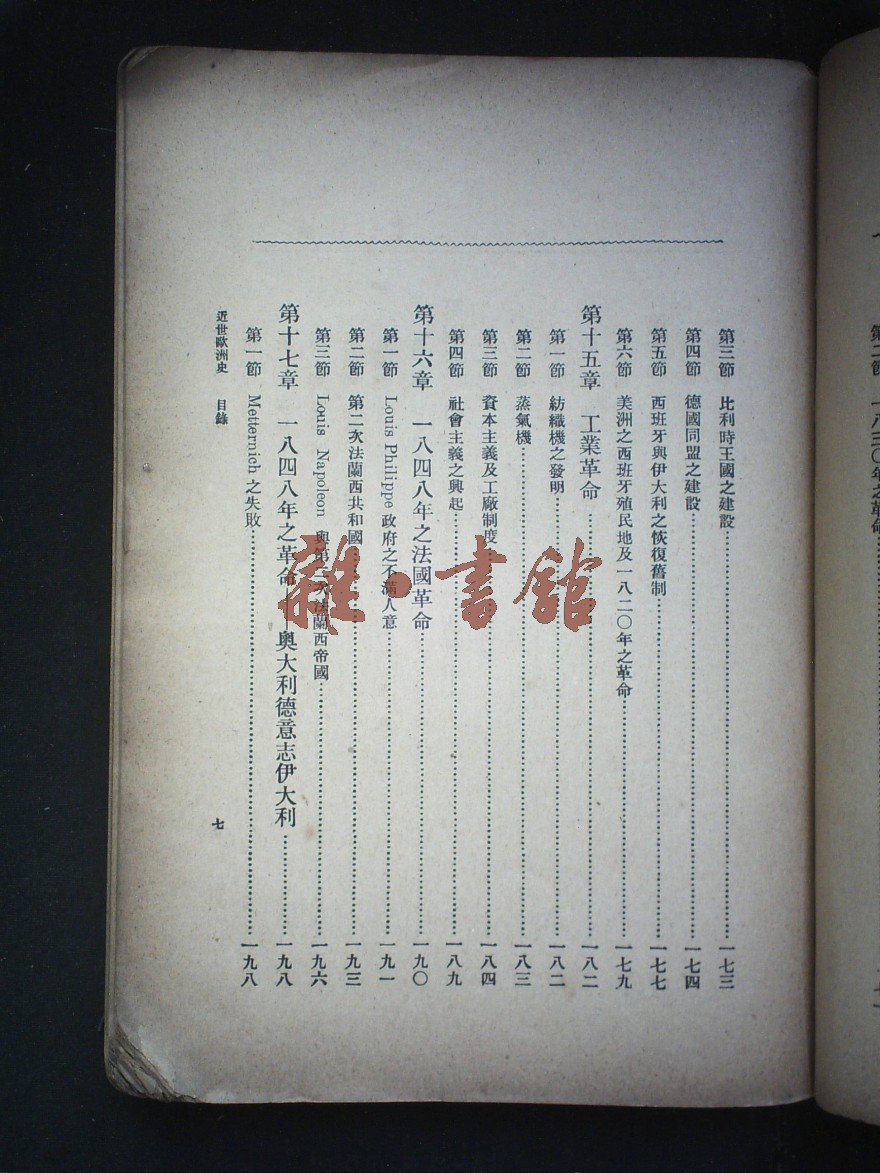 第三節 比利時王國之建設……一七三
第四節 德國同盟之建設……一七四
第五節 西班牙與伊大利之恢復舊制……一七七
第六節 美洲之西班牙殖民地及一八二〇年之革命……一七九
第十五章 工業革命……一八二
第一節 紡織機之發明……一八二
第二節 蒸氣機……一八三
第三節 資本主義及工廠制度……一八四
第四節 社會主義之興起……一八九
第十六章 一八四八年之法國革命……一九〇
第一節 Louis Philippe 政府之不滿人意……一九一
第二節 第二次法蘭西共和國……一九三
第三節 Louis Napoleon 與第二次法蘭西帝國……一九六
第十七章 一八四八年之革命——奧大利德意志伊大利……一九八
第一節 Metternich 之失敗……一九八
近世歐洲史 目錄
七
雜·書館
第二節 一八三〇年之革命